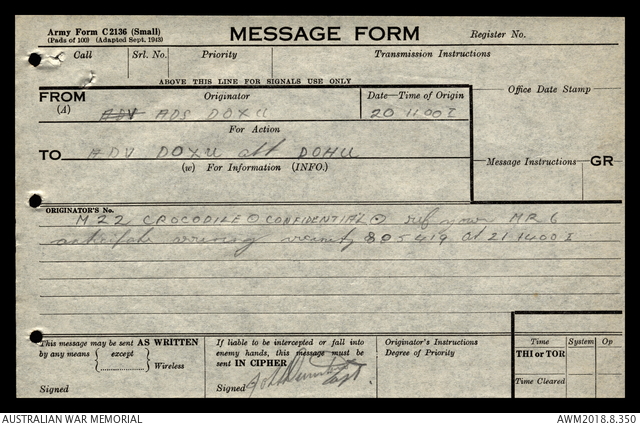 Army Form C2136 (Small)
(Pads of 100) (Adapted Sept. 1943)
MESSAGE FORM
Register No.
Call
Srl. No.
Priority
Transmission Instructions
ABOVE THIS LINE FOR SIGNALS USE ONLY
FROM
(A)
Originator
Date—Time of Origin
Office Date Stamp
ADV ADS DOXU
20 1100 I
For Action
TO
ADV DOXU att DOHU
(w) For Information (INFO.)
Message Instructions
GR
ORIGINATOR'S No.
M22 CROCODILE ⊙ CONFIDENTIAL ⊙ ref your MR6
vicinity 805419 at 21 1400 I
This message may be sent AS WRITTEN
by any means { except } Wireless
Signed
If liable to be intercepted or fall into
enemy hands, this message must be
sent IN CIPHER
Signed
Capt.
Originator's Instructions
Degree of Priority
Time
System
Op
THI or TOR
Time Cleared
AUSTRALIAN WAR MEMORIAL
AWM2018.8.350